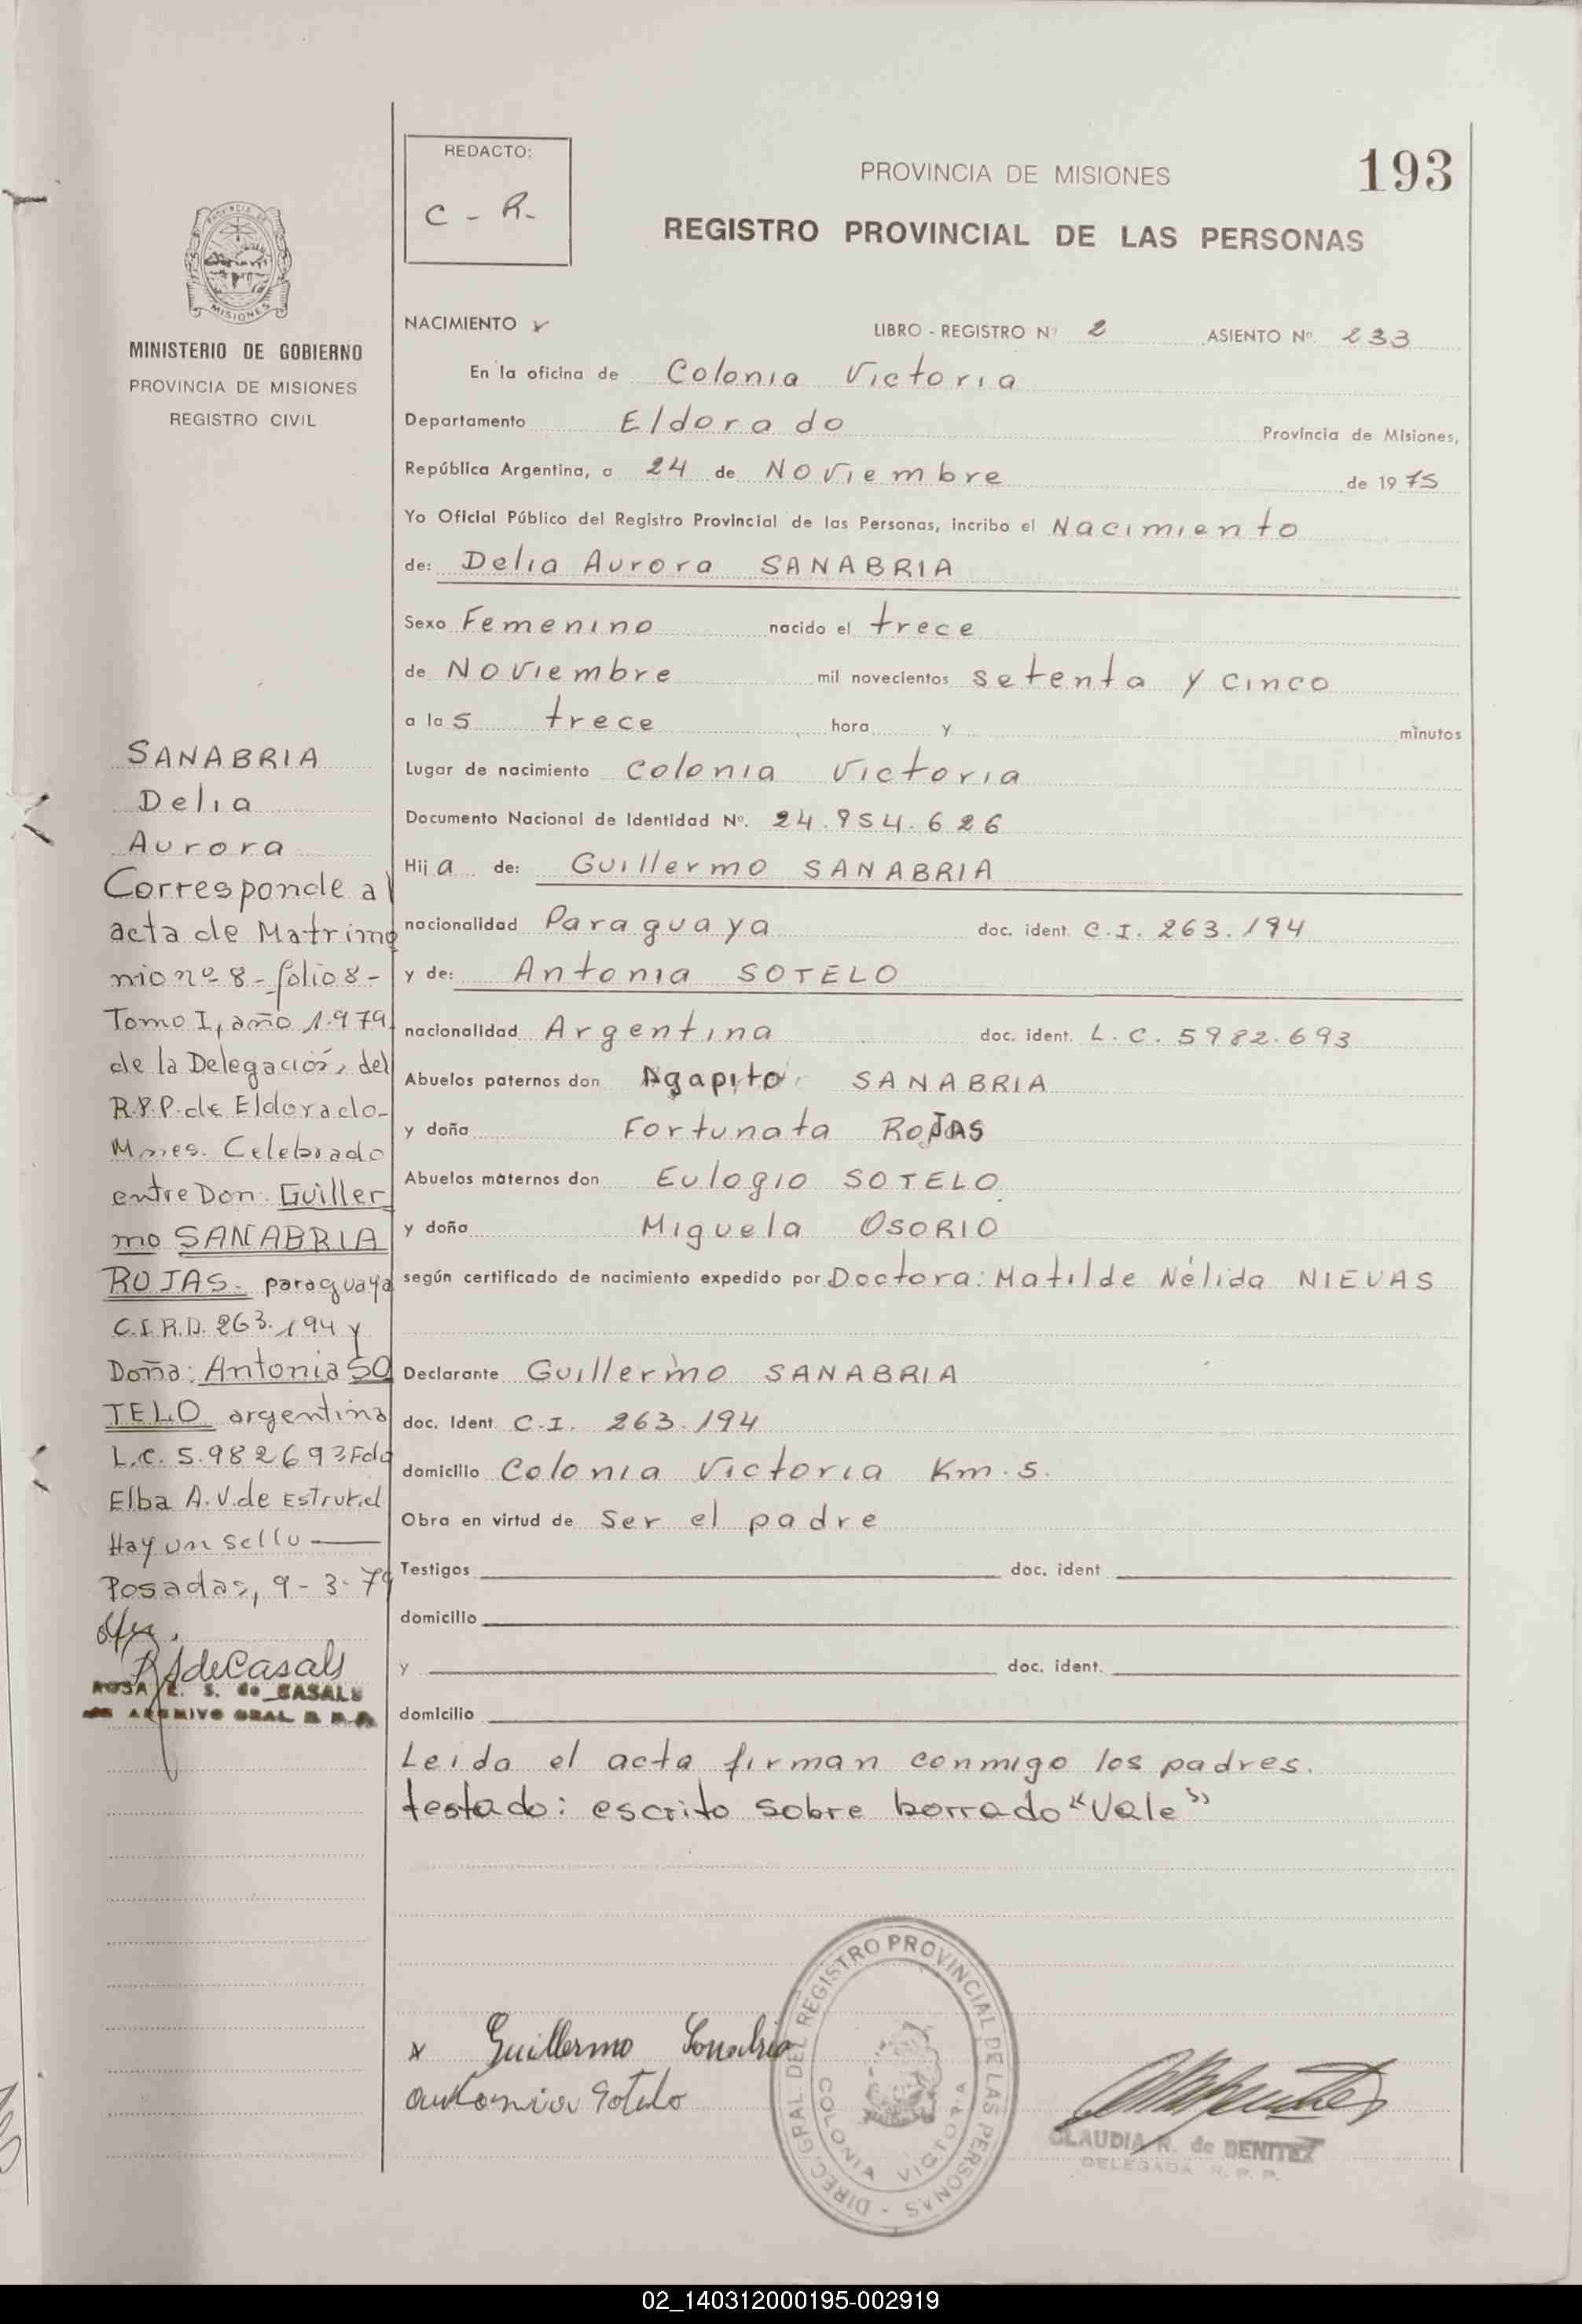 193
REDACTO:
C - R-
PROVINCIA DE MISIONES
REGISTRO PROVINCIAL DE LAS PERSONAS
MISIONES
MINISTERIO DE GOBIERNO
PROVINCIA DE MISIONES
REGISTRO CIVIL
SANABRIA
Delia
Aurora
Corresponde al
acta de Matrimo
nio nº 8 - folio 8 -
Tomo I, año 1.979
de la Delegación, del
R.P.P. de Eldorado-
Mnes. Celebrado
entre Don: Guiller
mo SANABRIA
ROJAS- paraguaya
C.I.R.D. 263.194 y
Doña: Antonia SO
TELO argentina
L.C. 5.982693 Fdo
Elba A. V. de
Hay un sello
Posadas, 9-3-79
RSdeCasals
ROSA E. S. de CASALS
ARCHIVO GRAL R. P. P.
NACIMIENTO x LIBRO - REGISTRO Nº 2 ASIENTO Nº. 233
En la oficina de Colonia Victoria
Departamento Eldorado Provincia de Misiones,
República Argentina, a 24 de Noviembre de 1975
Yo Oficial Público del Registro Provincial de las Personas, incribo el Nacimiento
de: Delia Aurora SANABRIA
Sexo Femenino nacido el trece
de Noviembre mil novecientos setenta y cinco
a las trece hora y minutos
Lugar de nacimiento Colonia Victoria
Documento Nacional de Identidad Nº. 24.954.626
Hija de: Guillermo SANABRIA
nacionalidad Paraguaya doc. ident. C.I. 263.194
y de: Antonia SOTELO
nacionalidad Argentina doc. ident. L.C. 5982.693
Abuelos paternos don Agapito SANABRIA
y doña Fortunata ROJAS
Abuelos maternos don Eulogio SOTELO
y doña Miguela OSORIO
según certificado de nacimiento expedido por Doctora: Matilde Nélida NIEVAS
Declarante Guillermo SANABRIA
doc. Ident. C.I. 263.194
domicilio Colonia Victoria Km. 5.
Obra en virtud de ser el padre
Testigos doc. ident
domicilio
y doc. ident.
domicilio
Leida el acta firman conmigo los padres.
testado: escrito sobre borrado "Vale"
x Guillermo Sanabria
antonia Sotelo
DIREC. GRAL. DEL REGISTRO PROVINCIAL DE LAS PERSONAS -
COLONIA VICTORIA
CLAUDIA R. de BENITEZ
DELEGADA R. P. P.
02_140312000195-002919